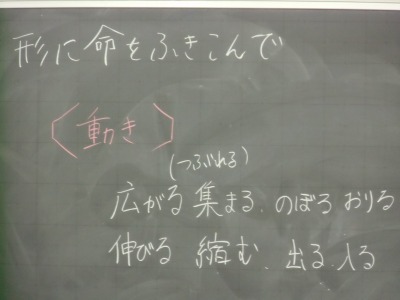 形に命をふきこんで
〔動き〕
(つぶれる)
広がる 集まる、のぼる おりる
伸びる 縮む、出る、入る